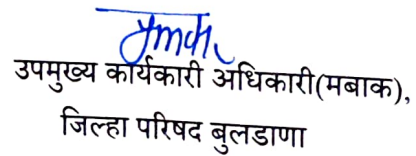 उपमुख्य कार्यकारी अधिकारी(मबाक),
जिल्हा परिषद बुलडाणा